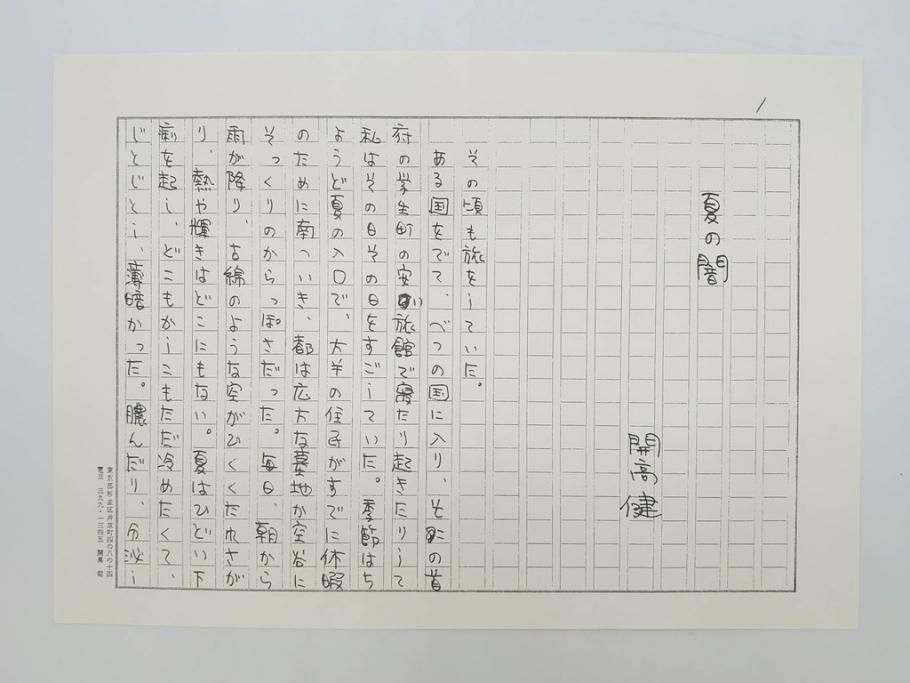 1
夏の闇
開高健
その頃も旅をしていた。
ある国をでて、べつの国に入り、その首
府の学生町の安い旅館で寝たり起きたりして
私はその日その日をすごしていた。季節はち
ょうど夏の入口で、大半の住民がすでに休暇
のために南へいき、都は広大な墓地か空谷に
そっくりのからっぽさだった。毎日、朝から
雨が降り、古綿のような空がひくくたれさが
り、熱や輝きはどこにもない。夏はひどい下
痢を起し、どこもかしこもただ冷めたくて、
じとじとし、薄暗かった。膿んだり、分泌し
東京都杉並区井草町四の八の十四
電話 三九九・一三四五 開高 健